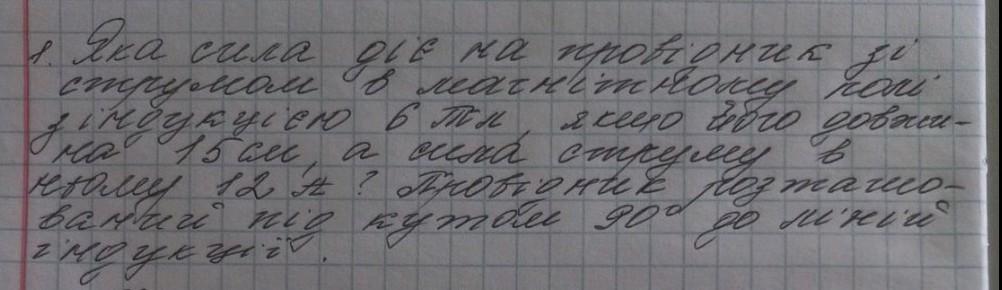 1. Яка сила діє на провідник зі
струмом в магнітному полі
з індукцією 6 Тл, якщо його довжи-
на 15 см, а сила струму в
ньому 12 А? Провідник розташо-
ваний під кутом 90° до ліній
індукції.